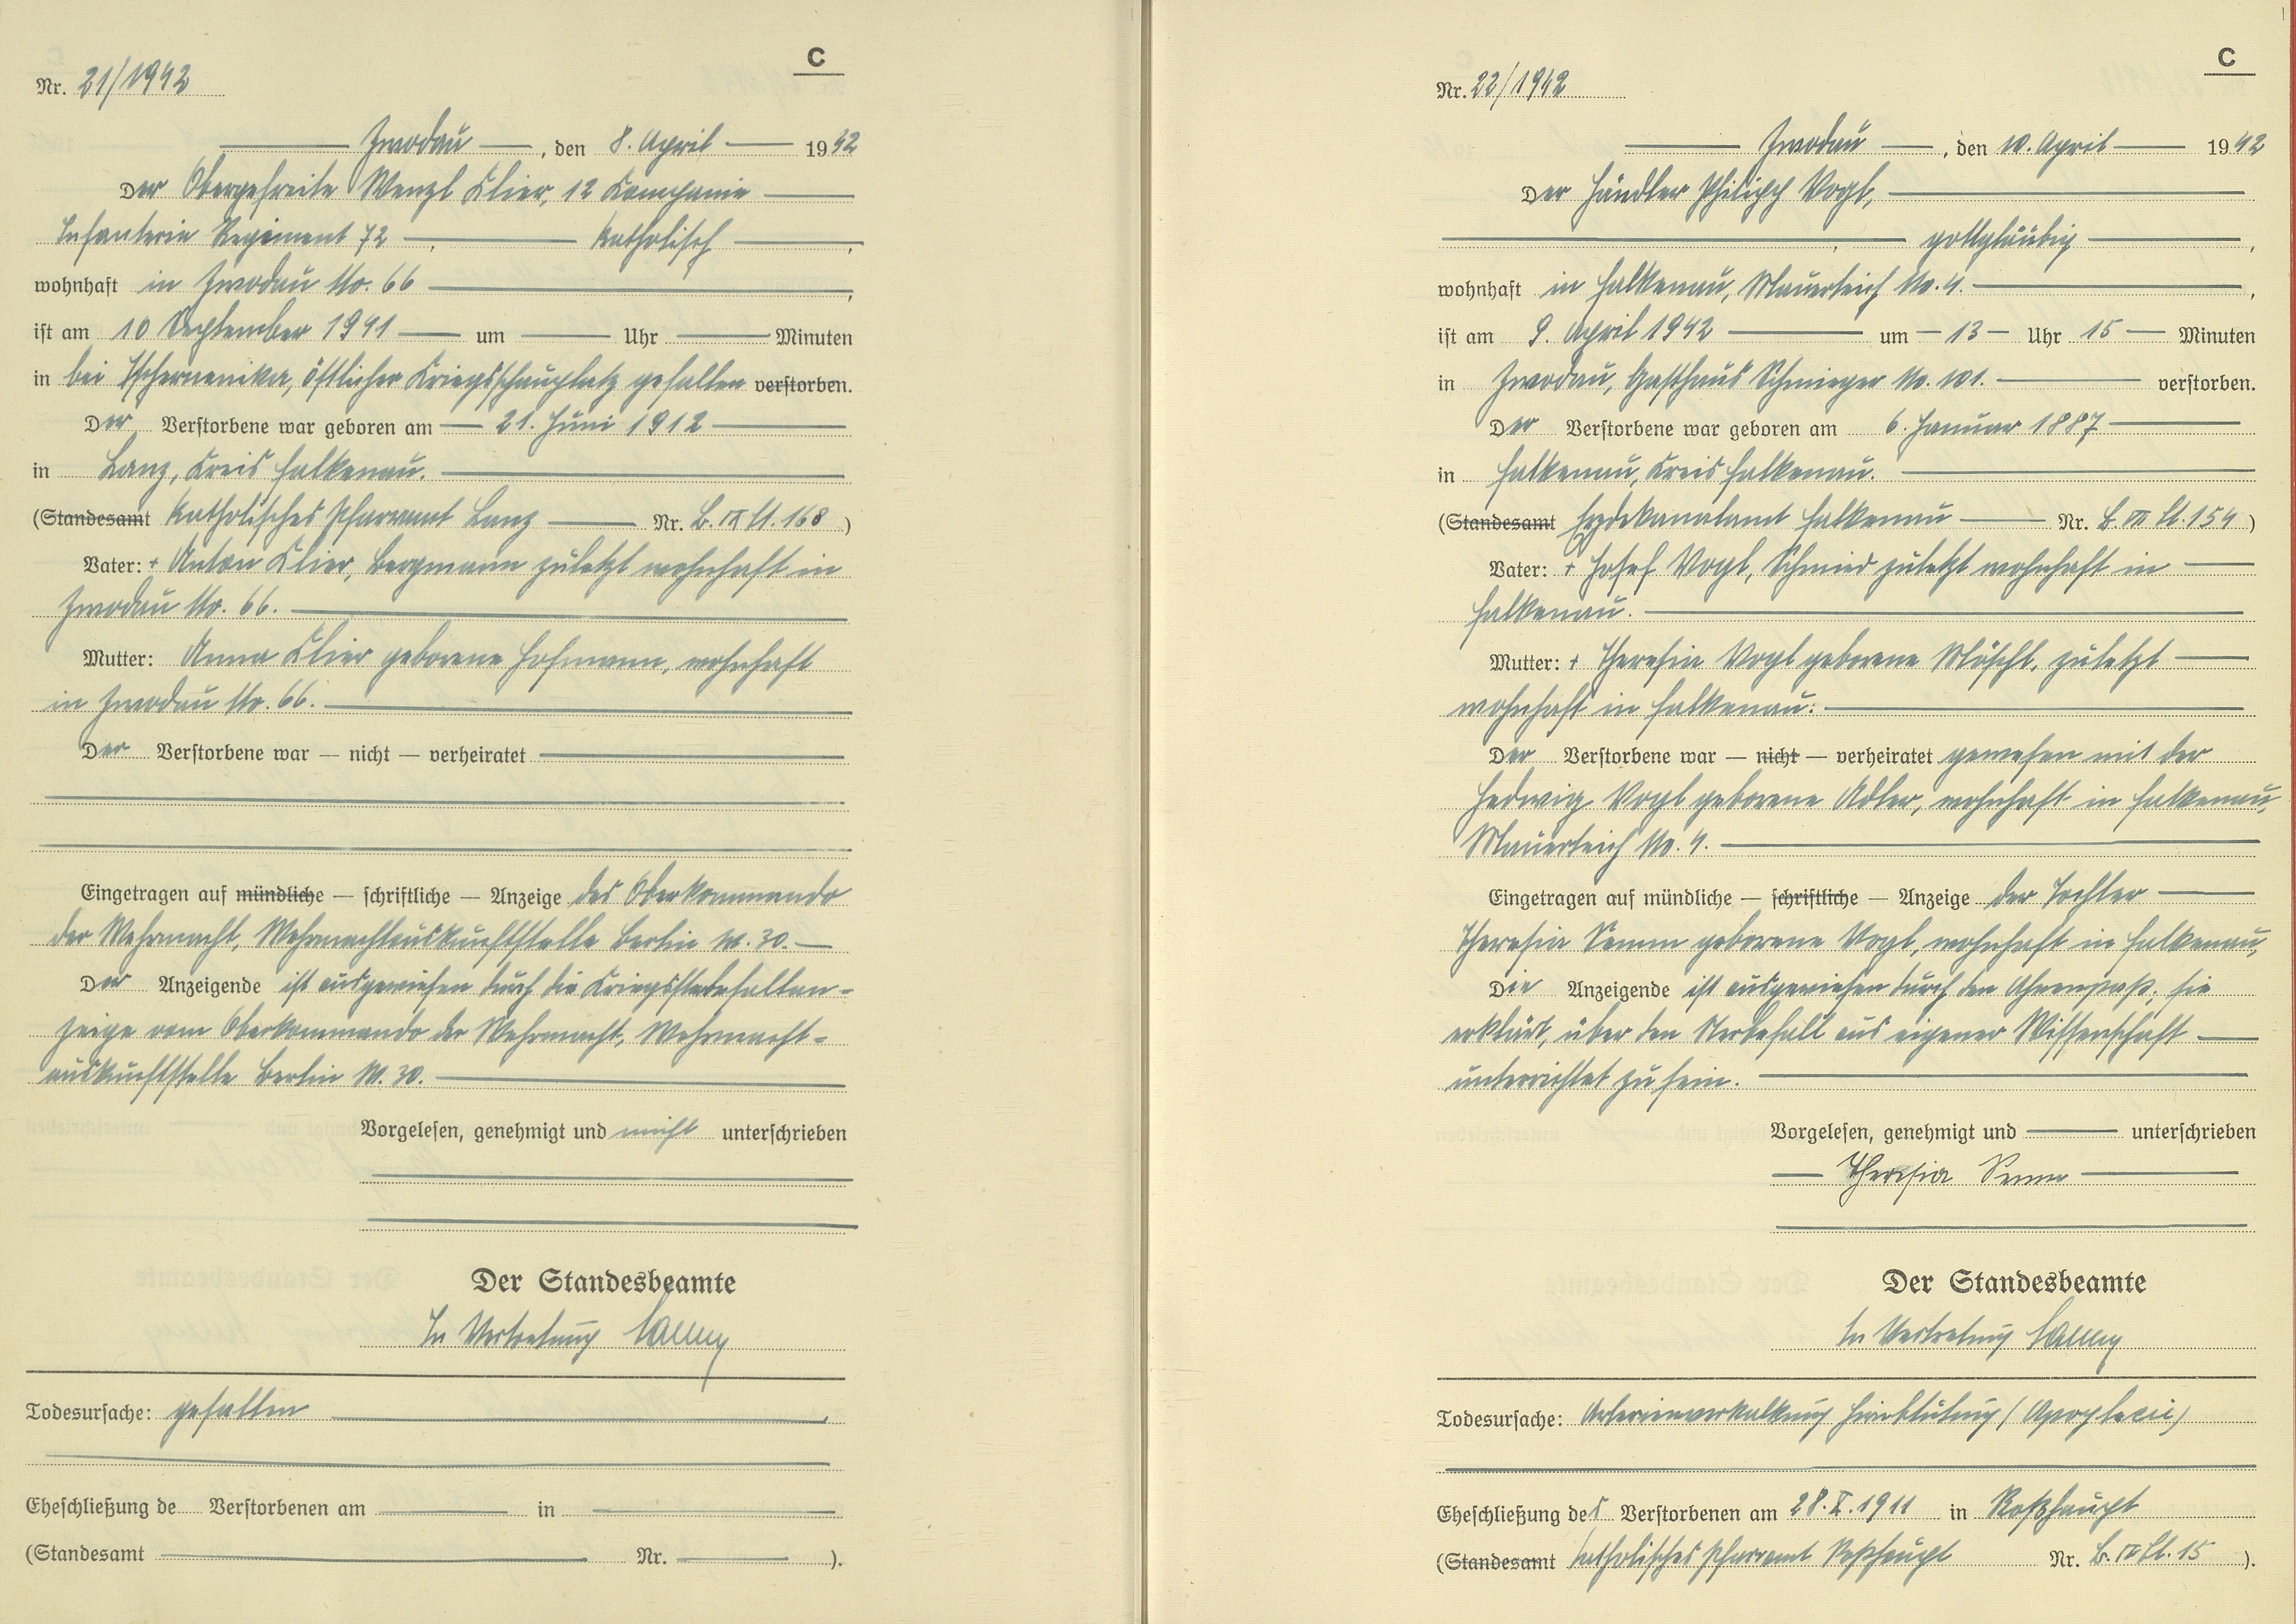 C
Nr. 21/1942
Zwodau, den 8. April 1942
Der Obergefreite Wenzl Klier, 12 Kompanie
Infanterie Regiment 72, katholisch,
wohnhaft in Zwodau No. 66,
ist am 10 September 1941 um Uhr Minuten
in bei Tschernenika, östlicher Kriegsschauplatz gefallen verstorben.
Der Verstorbene war geboren am 21. Juni 1912
in Lanz, Kreis Falkenau.
(Standesamt Katholisches Pfarramt Lanz Nr. B. IX Bl. 168)
Vater: + Anton Klier, Bergmann zuletzt wohnhaft in
Zwodau No. 66.
Mutter: Anna Klier geborene Hofmann, wohnhaft
in Zwodau No. 66.
Der Verstorbene war — nicht — verheiratet
Eingetragen auf mündliche — schriftliche — Anzeige des Oberkommando
der Wehrmacht, Wehrmachtauskunftstelle Berlin W. 30.
Der Anzeigende ist ausgewiesen durch die Kriegssterbefallan-
zeige vom Oberkommando der Wehrmacht, Wehrmacht-
auskunftstelle Berlin W. 30.
Vorgelesen, genehmigt und nicht unterschrieben
Der Standesbeamte
In Vertretung
Todesursache: gefallen
Eheschließung de Verstorbenen am in
(Standesamt Nr. ).
C
Nr. 22/1942
Zwodau, den 10. April 1942
Der Händler Philipp Vogl,
, gottgläubig,
wohnhaft in Falkenau, Mauerteich No. 4.,
ist am 9. April 1942 um 13 Uhr 15 Minuten
in Zwodau, Gasthaus Schmieger No. 101. verstorben.
Der Verstorbene war geboren am 6. Januar 1887
in Falkenau, Kreis Falkenau.
(Standesamt Erzdekanalamt Falkenau Nr. B. VII Bl. 154)
Vater: + Josef Vogl, Schmied zuletzt wohnhaft in
Falkenau.
Mutter: + Theresia Vogl geborene Möschl, zuletzt
wohnhaft in Falkenau.
Der Verstorbene war — nicht — verheiratet gewesen mit der
Hedwig Vogl geborene Adler, wohnhaft in Falkenau,
Mauerteich No. 4.
Eingetragen auf mündliche — schriftliche — Anzeige der Tochter
Theresia Semm geborene Vogl, wohnhaft in Falkenau,
Die Anzeigende ist ausgewiesen durch den Ahnenpaß, sie
erklärt, über den Sterbefall aus eigener Wissenschaft
unterrichtet zu sein.
Vorgelesen, genehmigt und unterschrieben
Theresia Semm
Der Standesbeamte
In Vertretung
Todesursache: Arterienverkalkung Hirnblutung (Apoplexie)
Eheschließung des Verstorbenen am 28.X.1911 in Roßhaupt
(Standesamt Katholisches Pfarramt Roßhaupt Nr. B. IX Bl. 15).